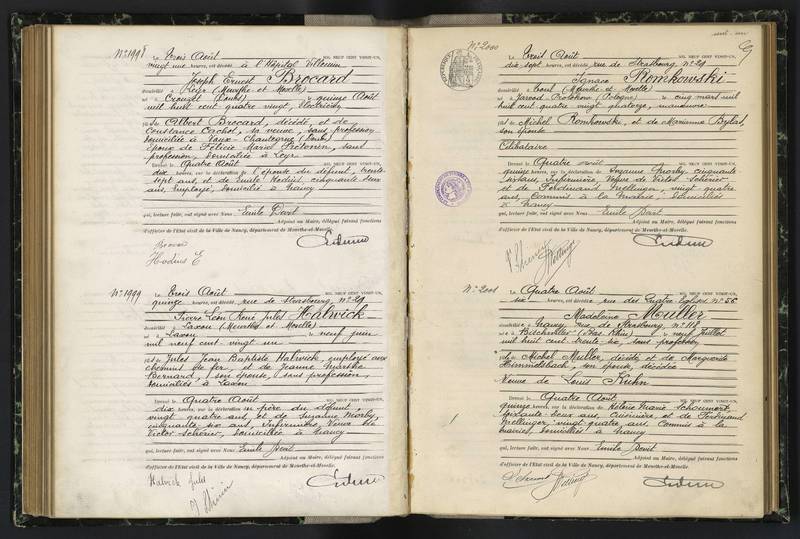 N° 1998
Le Trois Août MIL NEUF CENT VINGT-UN,
vingt une heures, est décédé à l'Hôpital Villemin
Joseph Ernest Brocard
domicilié à Leyr (Meurthe et Moselle)
né à Crouzet (Doubs) le quinze Août
mil huit cent quatre vingt, Electricien
fils de Albert Brocard, décédé, et de
Constance Cachot, sa veuve, sans profession
domiciliée à Vaux-Chantegrue (Doubs)
époux de Félicie Maria
profession, domiciliée à Leyr
Dressé le Quatre Août MIL NEUF CENT VINGT-UN,
dix heures, sur la déclaration de l'épouse du défunt, trente
sept ans, et de Emile Hodius, cinquante deux
ans, employé, domicilié à Nancy
qui, lecture faite, ont signé avec Nous Emile Dorit
Adjoint au Maire, délégué faisant fonctions
d'officier de l'Etat civil de la Ville de Nancy, département de Meurthe-et-Moselle.
Hodius E
N° 1999
Le Trois Août MIL NEUF CENT VINGT-UN,
quinze heures, est décédé rue de Strasbourg, N° 29
Pierre Léon René Jules Halwick
domicilié à Laxou (Meurthe et Moselle)
né à Laxou le neuf juin
mil neuf cent vingt un
fils de Jules Jean Baptiste Halwick, employé aux
chemins de fer, et de Jeanne Marthe
Bernard, son épouse, sans profession
domiciliés à Laxou
Dressé le Quatre Août MIL NEUF CENT VINGT-UN,
dix heures, sur la déclaration du père du défunt
vingt quatre ans, et de Suzanne Morby,
cinquante six ans, Infirmière, Veuve de
Victor Schérier, domiciliée à Nancy
qui, lecture faite, ont signé avec Nous Emile Dorit
Adjoint au Maire, délégué faisant fonctions
d'officier de l'Etat civil de la Ville de Nancy, département de Meurthe-et-Moselle.
Halwick Jules
N° 2000
Le Trois Août MIL NEUF CENT VINGT-UN,
dix sept heures, est décédé rue de Strasbourg N° 29
Ignace Romkowski
domicilié à Toul (Meurthe et Moselle)
né à (Pologne) le cinq mars mil
huit cent quatre vingt quatorze, manœuvre
fils de Michel Romkowski, et de Marianne Bylat,
son épouse
Célibataire
Dressé le Quatre août MIL NEUF CENT VINGT-UN,
quinze heures, sur la déclaration de Suzanne Morby, cinquante
six ans, Infirmière, Veuve de Victor Schérier
et de Ferdinand Mellinger, vingt quatre
ans, Commis à la Mairie, domiciliés
à Nancy
qui, lecture faite, ont signé avec Nous Emile Dorit
Adjoint au Maire, délégué faisant fonctions
d'officier de l'Etat civil de la Ville de Nancy, département de Meurthe-et-Moselle.
N° 2001
Le Quatre Août MIL NEUF CENT VINGT-UN,
six heures, est décédée rue des Quatre Eglises N° 56
Madeleine Muller
domiciliée à Nancy, rue de Strasbourg, N° 118
née à Bischwiller (Bas Rhin) le neuf Juillet
mil huit cent trente six, sans profession
fille de Michel Muller, décédé, et de Marguerite
Himmelsbach, son épouse, décédée
Veuve de Louis Kuhn
Dressé le Quatre Août MIL NEUF CENT VINGT-UN,
quinze heures, sur la déclaration de Hélène Marie
soixante deux ans, et de Ferdinand
Mellinger, vingt quatre ans, Commis à la
Mairie, domiciliés à Nancy
qui, lecture faite, ont signé avec Nous Emile Dorit
Adjoint au Maire, délégué faisant fonctions
d'officier de l'Etat civil de la Ville de Nancy, département de Meurthe-et-Moselle.